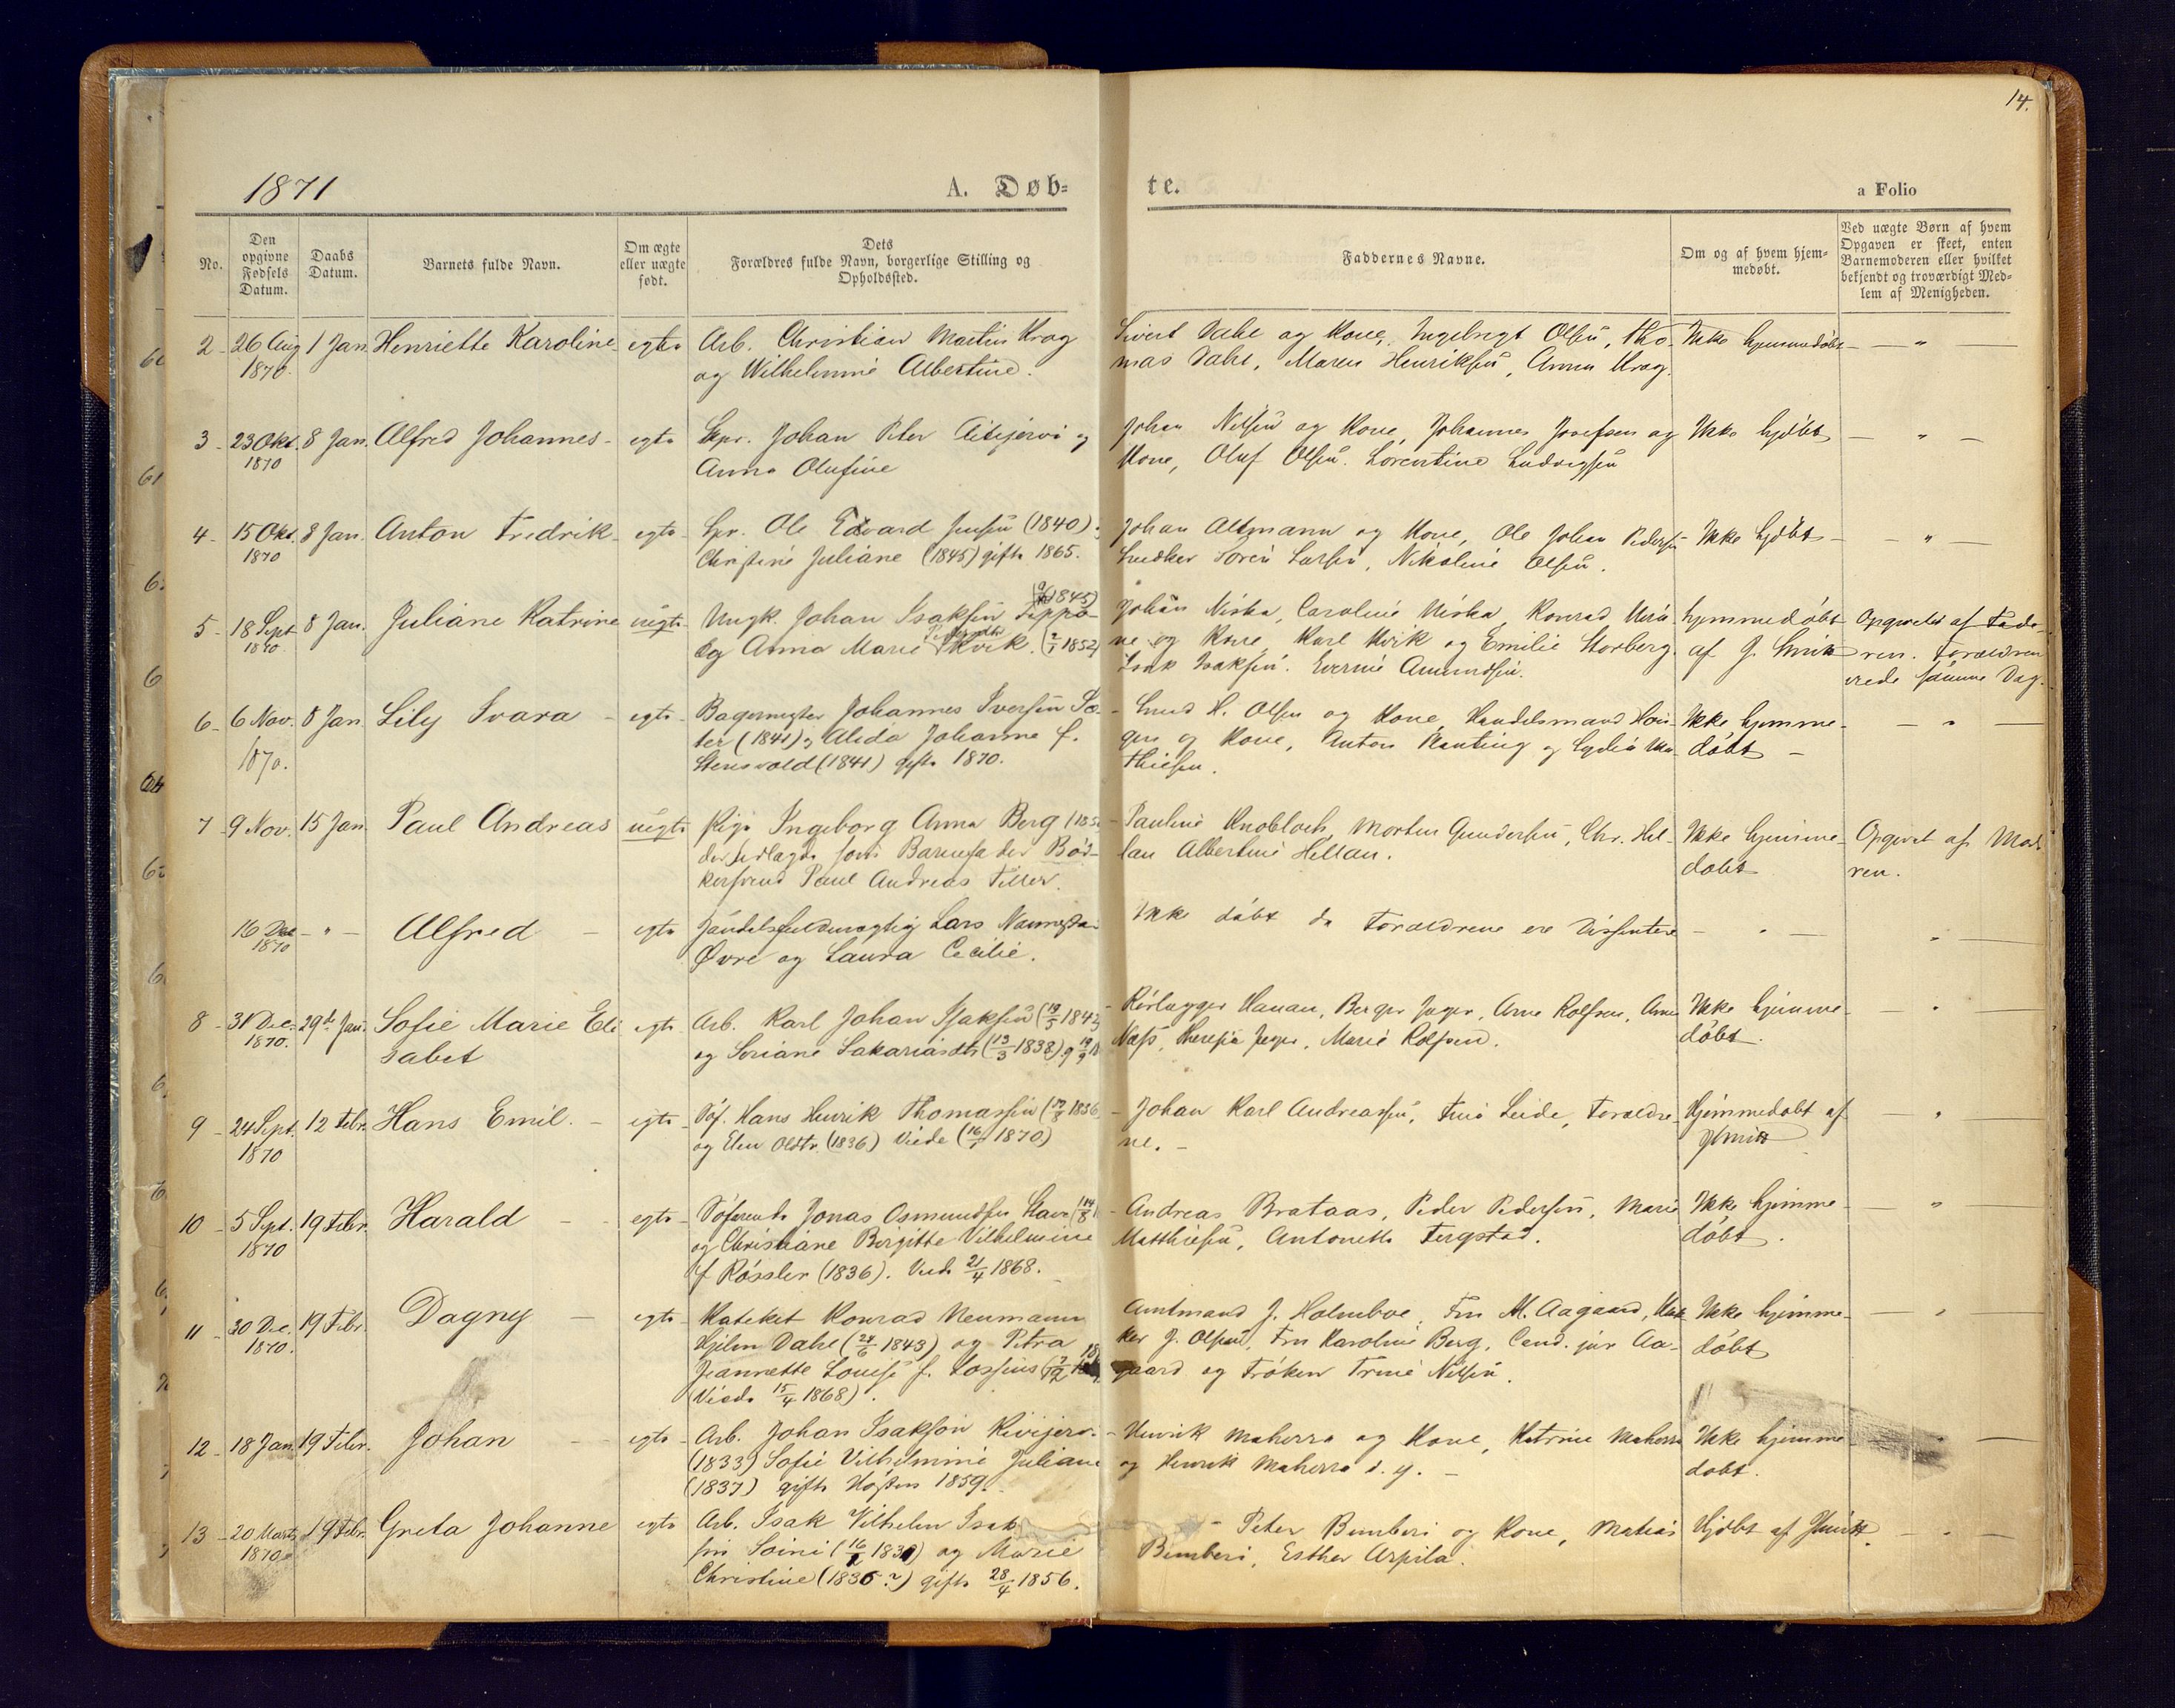 14.
1871
A. Døb=
te.
a Folio
No.
Den opgivne Fødsels Datum.
Daabs Datum.
Barnets fulde Navn.
Om ægte eller uægte født.
Dets Forældres fulde Navn, borgerlige Stilling og Opholdssted.
Faddernes Navne.
Om og af hvem hjemmedøbt.
Ved uægte Børn af hvem Opgaven er skeet, enten Barnemoderen eller hvilket bekjendt og troværdigt Medlem af Menigheden.
2 - 26 Aug 1870. 1 Jan. Henriette Karoline egte
Arb. Christian Martin Krog
og Wilhelmine Albertine.
Sivert Dahl og Kone, Ingebregt Olsen, Tho-
mas Dahl, Maren Henriksen, Anna Krog.
Ikke hjemmedøbt
3 - 23 Okt. 1870 8 Jan. Alfred Johannes - egte
Johan Peter Aitijervi og
Anna Olufine
Johan Nilsen og Kone, Johannes Josefsen og
Kone, Oluf Olsen. Lorentine Ludvigsen
Ikke hjdøbt
4 - 15 Okt. 1870 8 Jan. Anton Fredrik - egte
Ole Edvard Jensen (1840)
Christine Juliane (1845) gifte 1865.
Johan Altmann og Kone, Ole Johan Pedersen
Snedker Søren Larsen, Nikoline Olsen.
Ikke hjdøbt
5 - 18 Sept 1870 8 Jan. Juliane Katrine uegte
Ungk. Johan Isaksen Seppä- 1845)
og Anna Marie Kvik. 1852
Johan Niska, Caroline Niska, Konrad
ne og Kone, Karl Kvik og Emilie Storberg.
Isak Isaksen. Amundsen.
hjemmedøbt
af J. Smith
Opgivet af Fade-
ren. Forældrene
viede samme Dag.
6 - 6 Nov. 1870. 8 Jan Lily Svara - egte
Bagermester Johannes Iversen Sæ-
ter (1841) og Alida Johanne f.
Stensvold (1841) gifte 1870.
Knud H. Olsen og Kone, Handelsmand Hau-
gen og Kone, Anton Nanting og Lydia Ma-
thiesen.
Ikke hjemme-
døbt -
7 - 9 Nov. 15 Jan. Paul Andreas uegte
Pige Ingeborg Anna Berg
der udlagde som Barnefader Bød-
kersvend Paul Andreas Tiller.
Pauline Knobloch, Morten Gundersen, Chr. Hel-
lan Albertine Hellan.
Ikke hjemme-
døbt
Opgivet af Mode
ren.
16 Dec 1870 - " - Alfred - egte
Handelsfuldmægtig Lars
Øvre og Laura Cecilie.
Ikke døbt da Forældrene ere Dissentere
8 - 31 Dec. 1870. 29de Jan. Sofie Marie Eli
sabet
egte
Arb. Karl Johan Isaksen (19/5 1842
og Seriane Sakariasdtr (13/3 1838)
Hanan, Berger Jæger, Arne Rolfsen,
Næss, Theresia Jæger, Marie Rolfsen.
Ikke hjemme-
døbt.
9 - 24 Sept. 1870 12 Febr. Hans Emil. - egte
Hans Henrik Thomassen 1836
og Elen Oldtr. (1836) Viede (16/7 1870)
Johan Karl Andreassen, Leide, Forældre
ne. -
Hjemmedøbt af
J Smith
10 - 5 Sept. 1870 19 Febr. Harald - egte
Jonas Osmundsen
og Christiane Birgitte Vilhelmine
f Røssler (1836). Viede 21/4 1868.
Andreas Brataas, Peder Pedersen, Marie
Matthiesen, Antonette Fergstad.
Ikke hjemme-
døbt.
11 - 30 Dec. 1870. 19 Febr. Dagny - egte
Kateket Konrad Neumann
Hjelm Dahl (24/6 1843) og Petra
Jeannette Louise f. Lossius
Viede 15/4 1868).
Amtmand J. Holmboe, Fru M. Aagaard,
J. Olsen, Fru Karoline Berg, Cand. jur Aa-
gaard og Frøken Trine Nilsen.
Ikke hjemme-
døbt
12 - 18 Jan. 19 Febr. Johan - egte
Arb. Johan Isaksøn Kivijervi
(1833) Sofie Vilhelmine Juliane
(1837) gifte Høsten 1859.
Henrik Maherra og Kone, Katrine Maherra
og Henrik Maherra d. y. -
Ikke hjemme
døbt.
13 - 20 Marts 1870. 19 Febr. Greta Johanne egte
Arb. Isak Vilhelm Isak
sen Soini og Marie
Christine (1836?) gifte 28/4 1856.
Peter Bumberi og Kone, Matias
Bumberi, Esther Arpila.
Hjdøbt af J Smith.